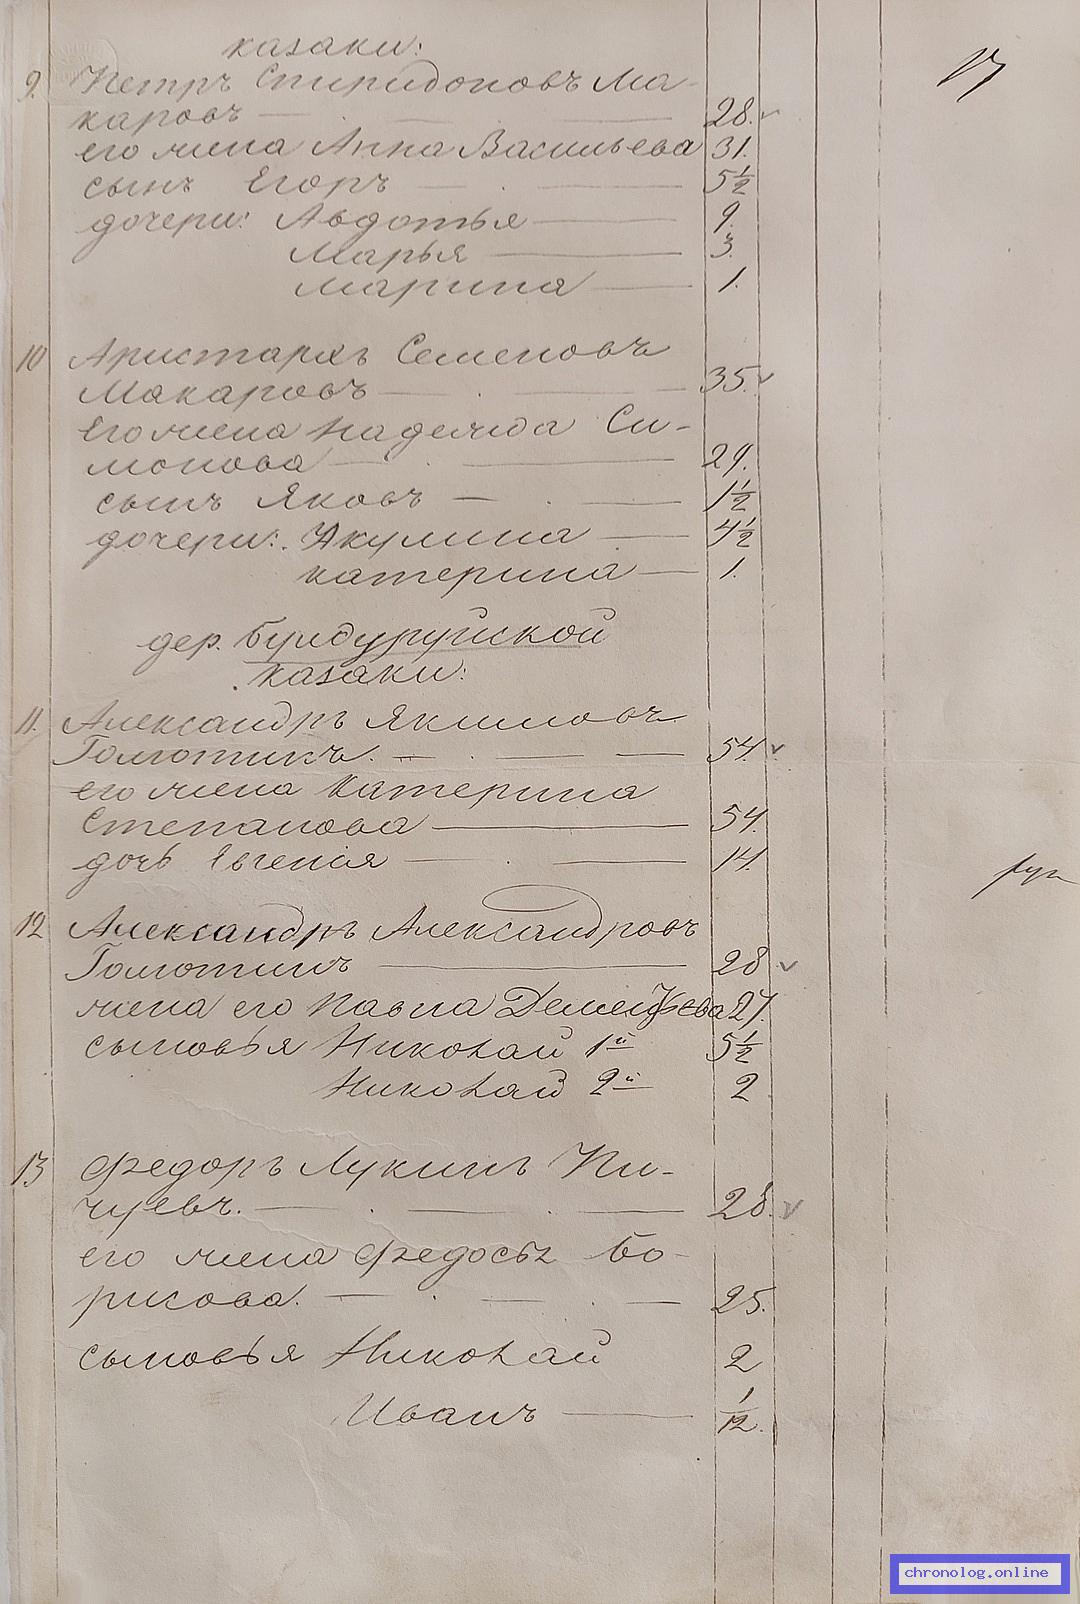 казаки:
17
9. Петръ Спиридоновъ Ма-
каровъ 28.
его жена Анна Васильева 31.
сынъ Егоръ 5 1/2
дочери: Авдотья 9.
Марья 3.
Марина 1.
10 Аристархъ Семеновъ
Макаровъ 35.
Его жена Надежда Си-
монова 29.
сынъ Яковъ 1 1/2
дочери: Акулина 4 1/2
Катерина 1.
дер.
казаки:
11. Александръ Якимовъ
54.
его жена Катерина
Степанова 54.
дочь Евгенія 14.
12 Александръ Александровъ
28
жена его Павла Дементьева 27.
сыновья Николай 1й 5 1/2
Николай 2й 2
13 Федоръ Лукинъ Пи-
чуевъ. 28.
его жена Федосья Бо-
рисова. 25.
сыновья Николай 2
Иванъ 1/12.
chronolog.online